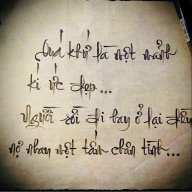 Quá khứ là một mảnh
kí ức đẹp...
Người rồi đi hay ở lại đều
nợ nhau một tấm chân tình...